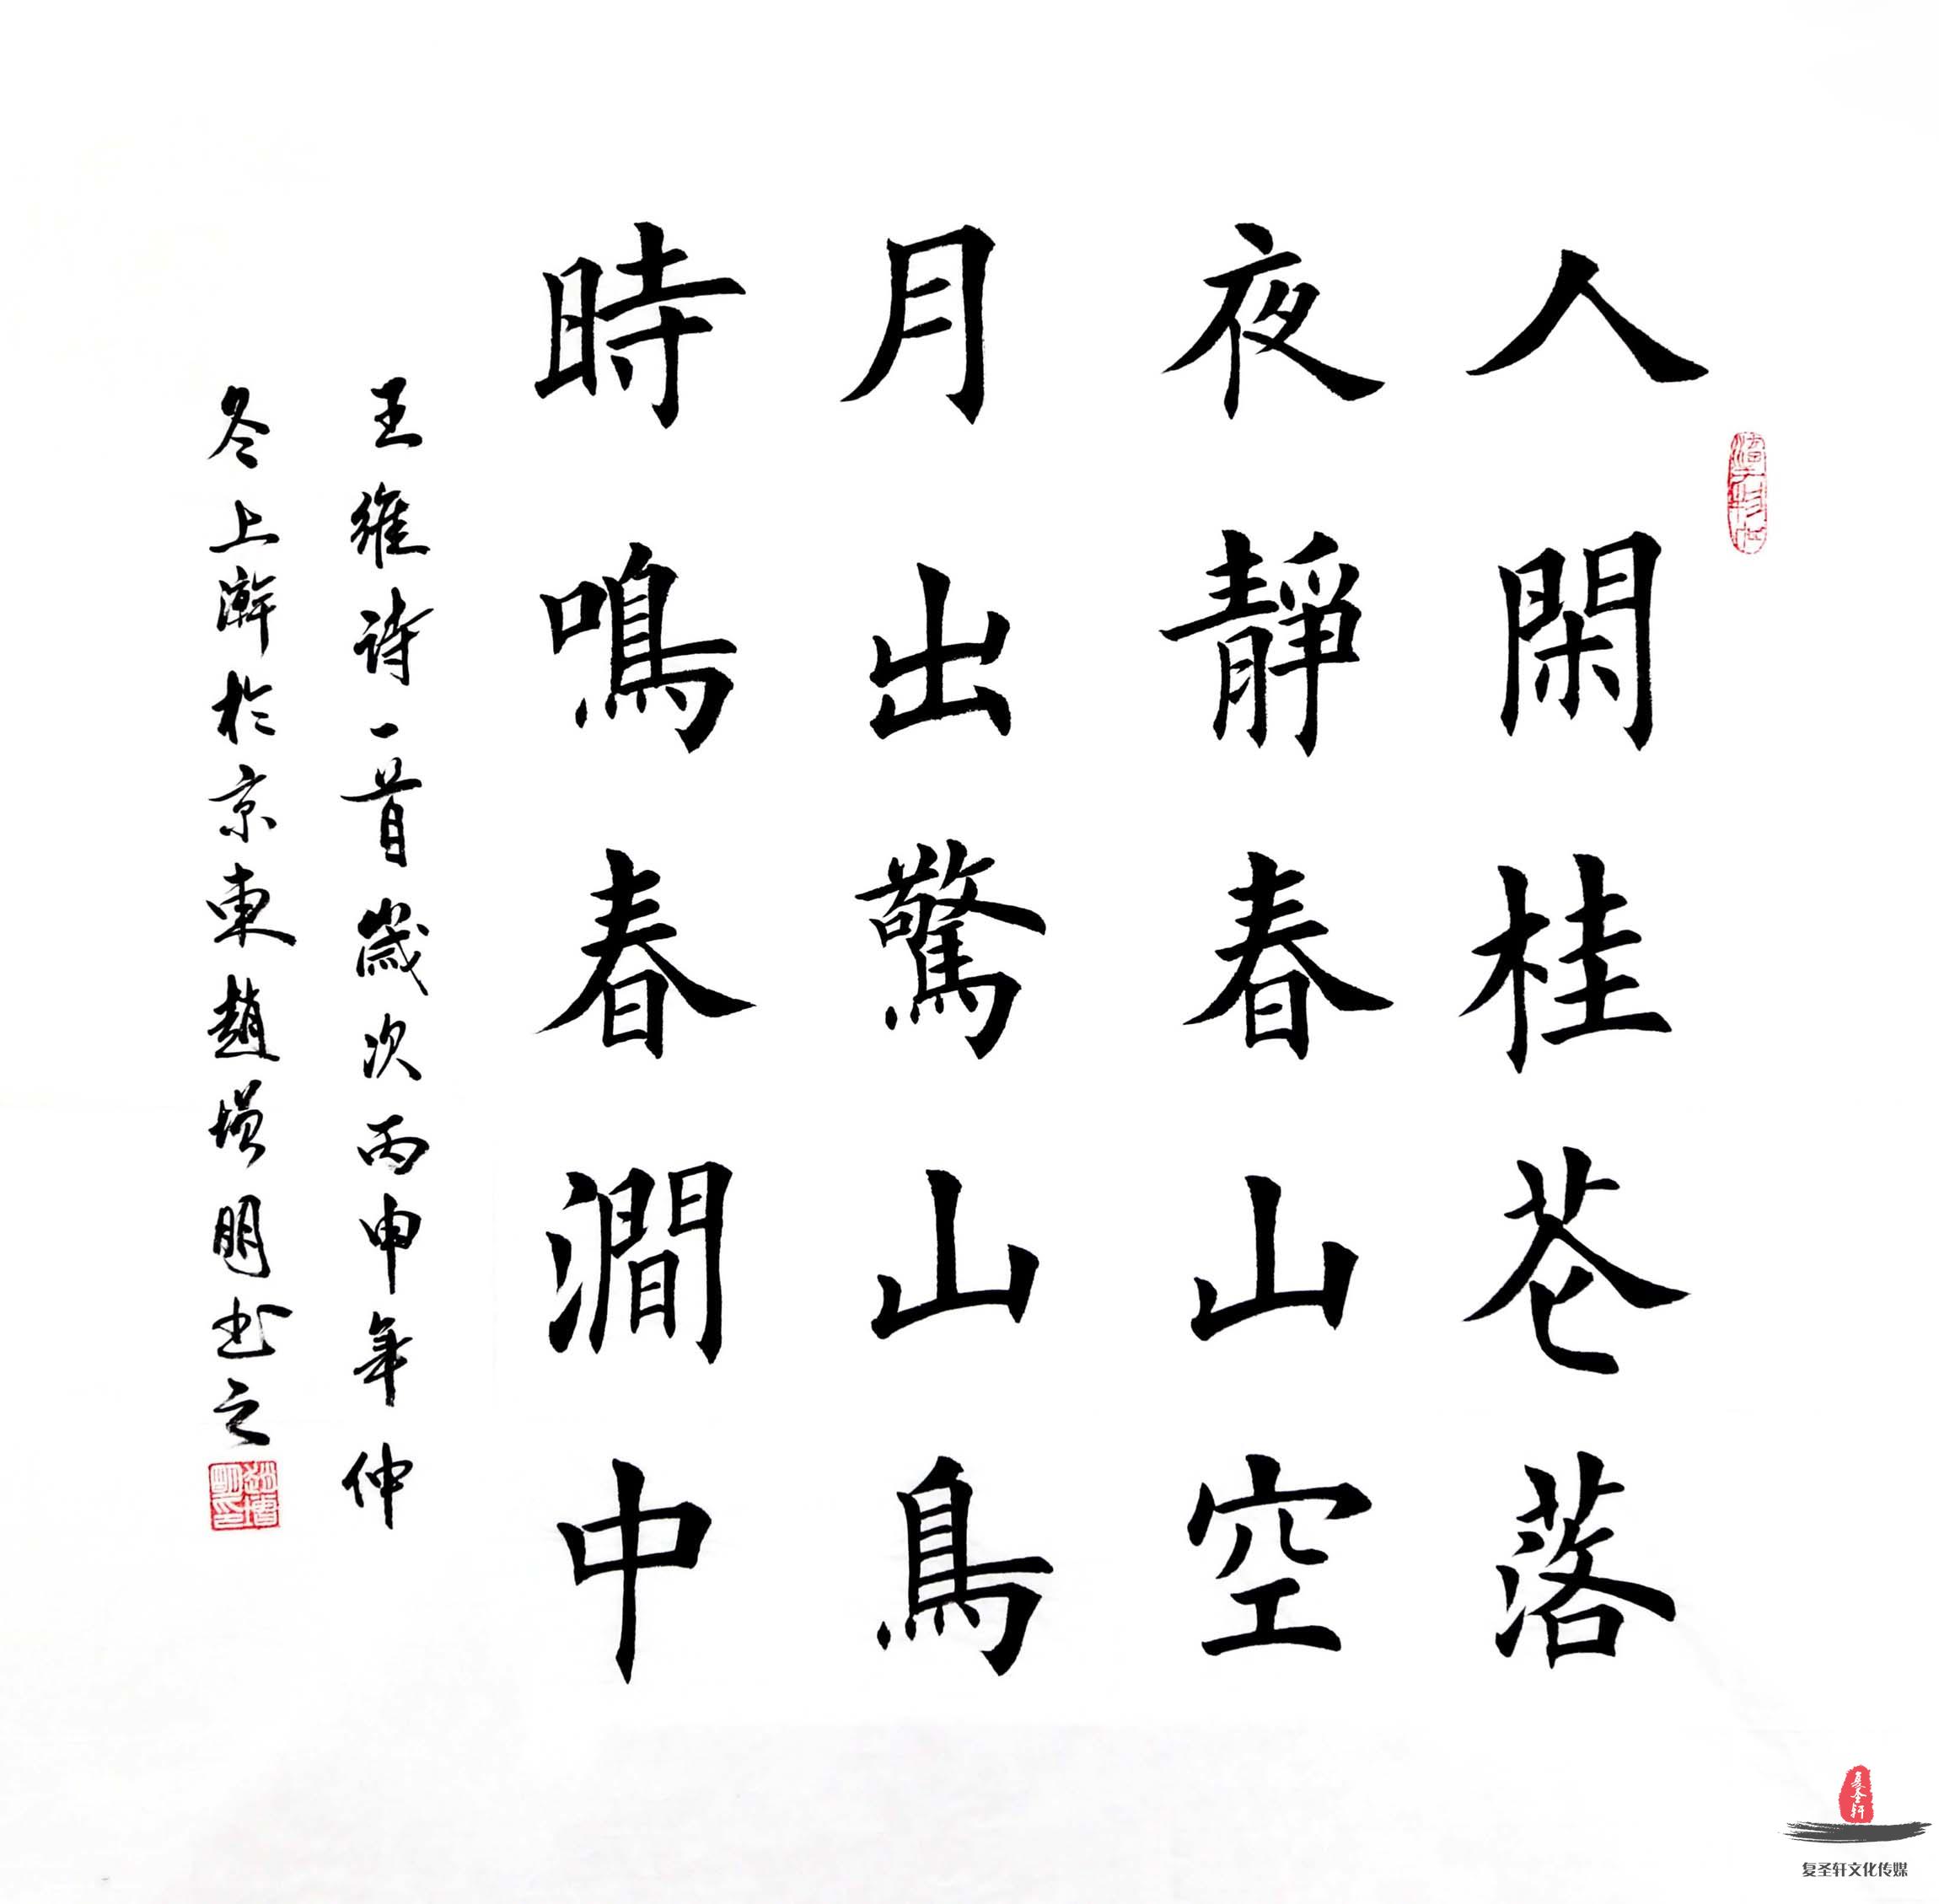 人閑桂花落
夜靜春山空
月出驚山鳥
時鳴春澗中
王維詩一首歲次丙申年仲
冬上澣於京東趙增明書之
复圣轩
复圣轩文化传媒